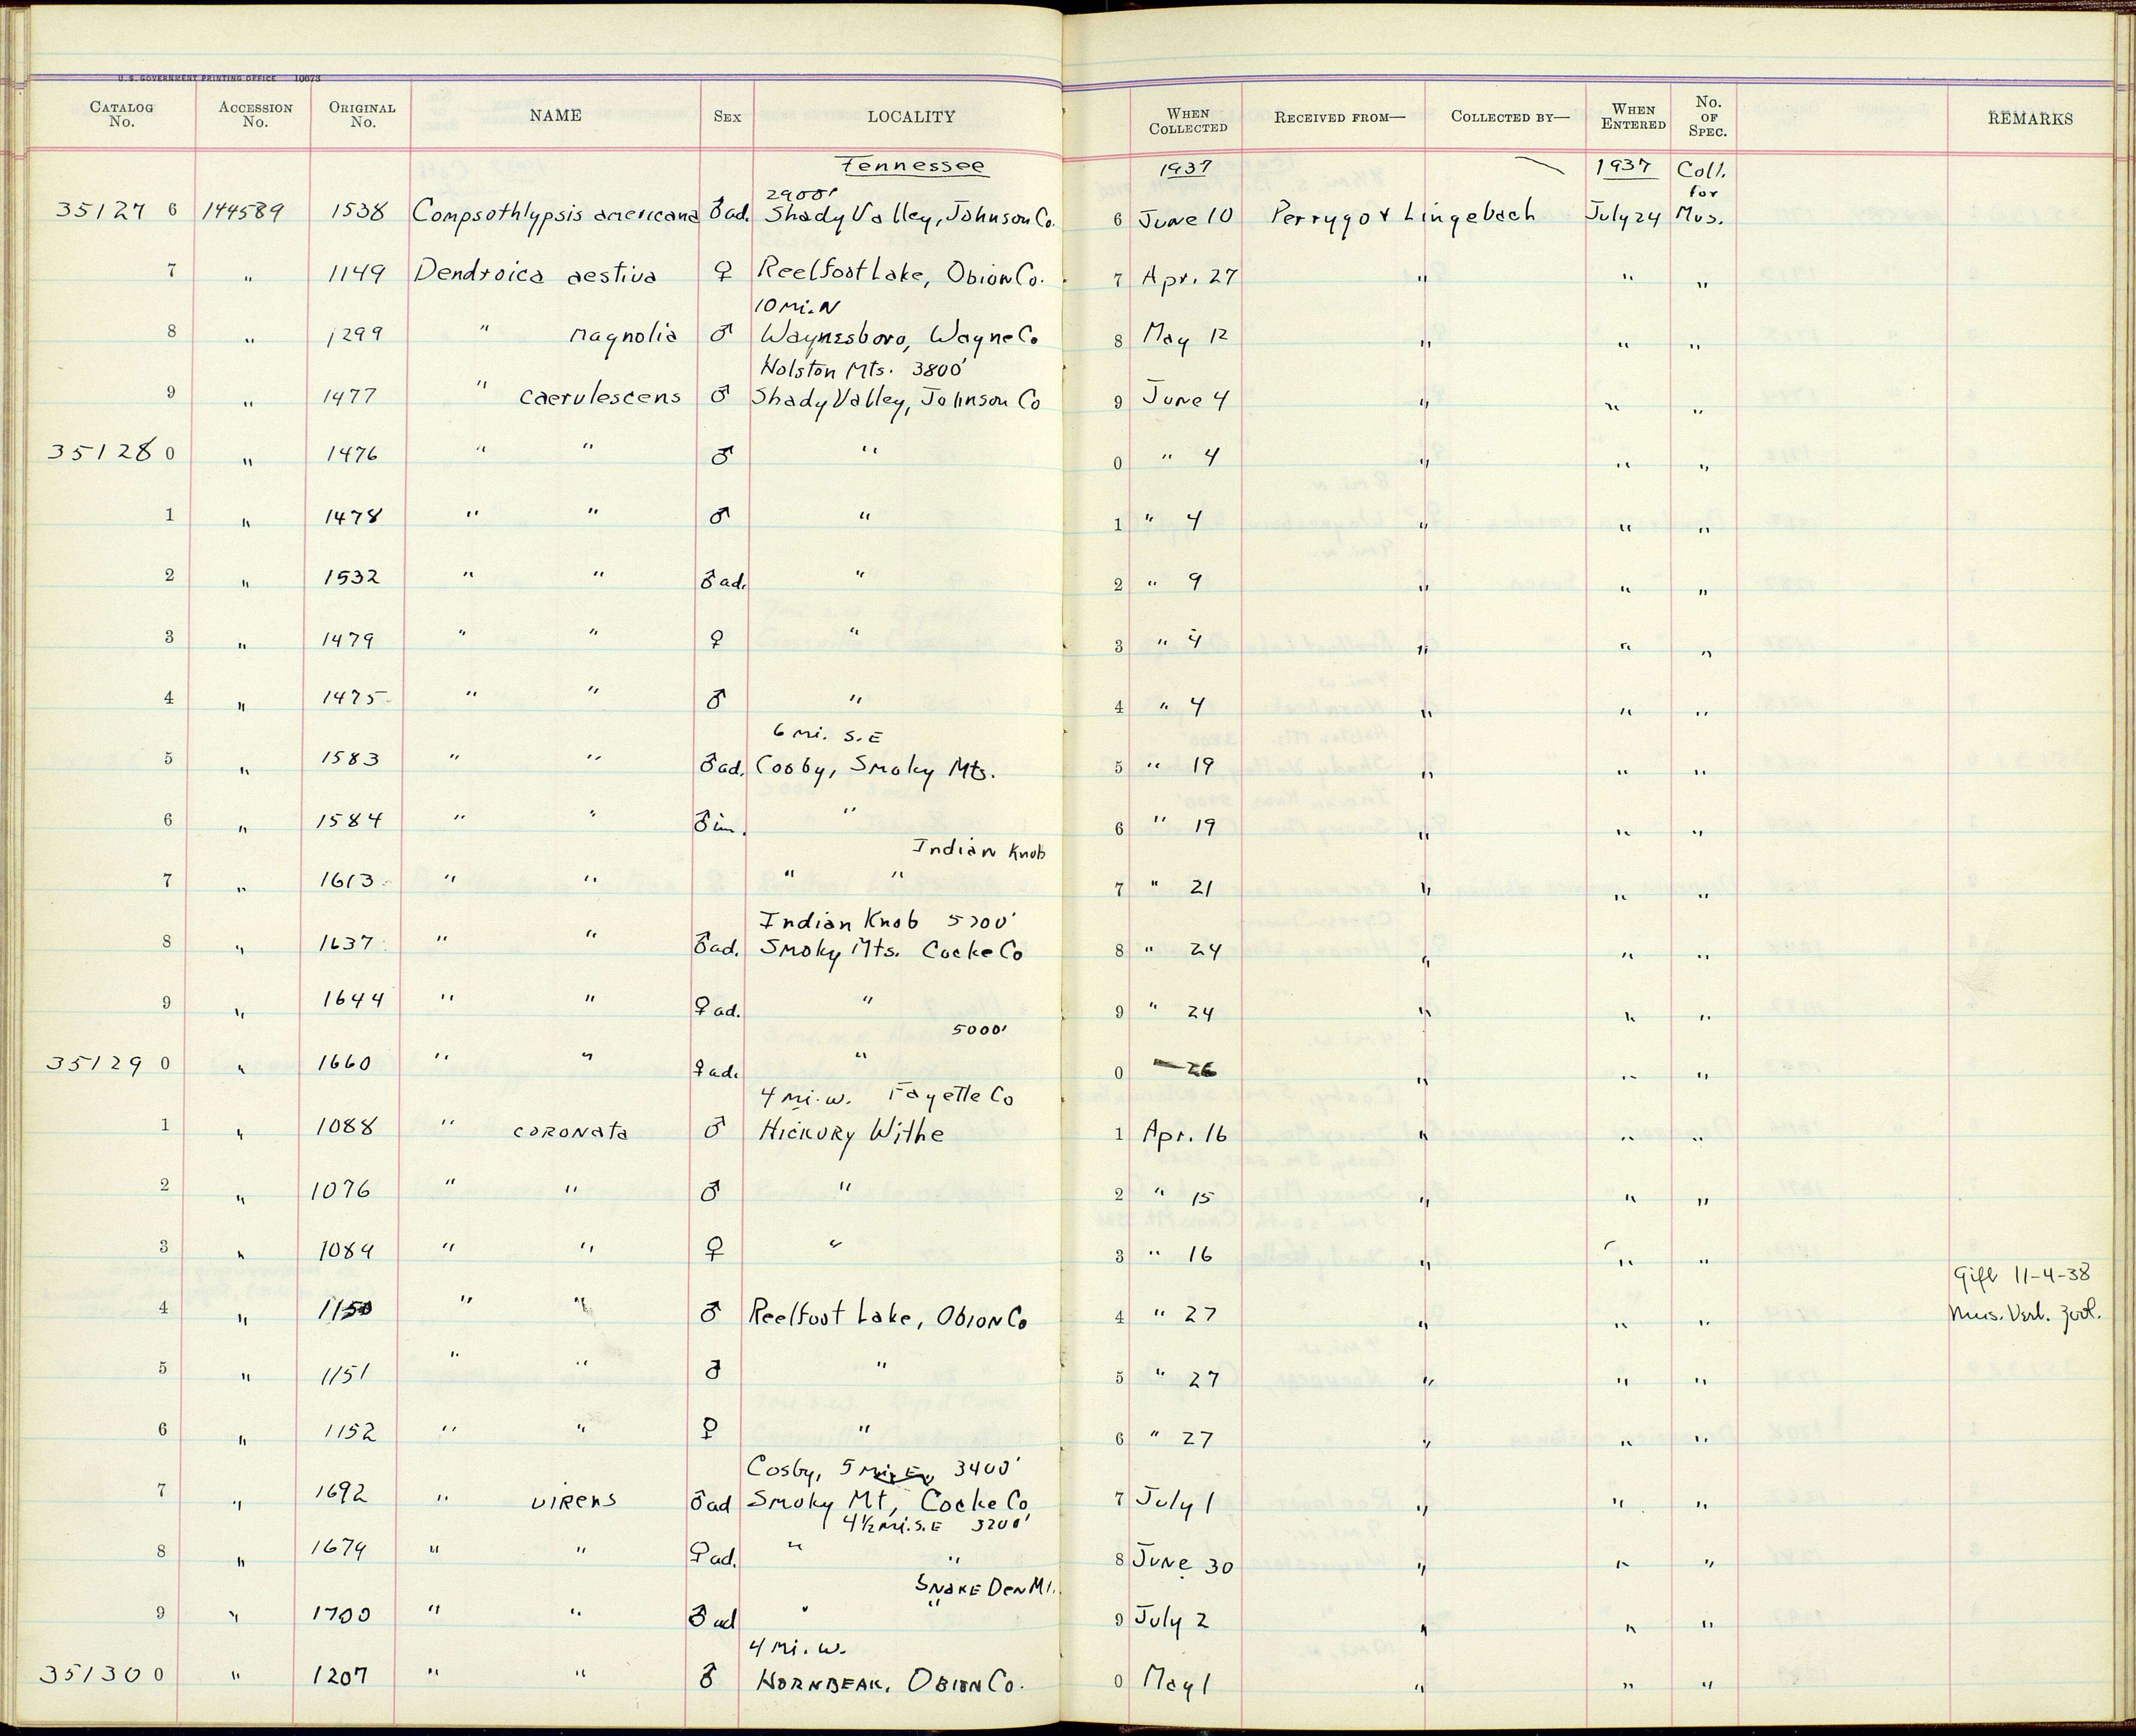 U.S. GOVERNMENT PRINTING OFFICE 10673
CATALOG No. ACCESSION No. ORIGINAL No. NAME SEX LOCALITY WHEN COLLECTED RECEIVED FROM— COLLECTED BY— WHEN ENTERED No. OF SPEC. REMARKS
Tennessee 1937 1937 Coll.
2900' for
35127 6 144589 1538 Compsothlypsis americana ♂ad. Shady Valley, Johnson Co. 6 June 10 Perrygo & Lingebach July 24 Mus.
7 " 1149 Dendroica aestiva ♀ Reelfoot Lake, Obion Co. 7 Apr. 27 " " "
10 mi. N
8 " 1299 " magnolia ♂ Waynesboro, Wayne Co 8 May 12 " " "
Holston Mts. 3800'
9 " 1477 " caerulescens ♂ Shady Valley, Johnson Co 9 June 4 " " "
35128 0 " 1476 " " ♂ " 0 " 4 " " "
1 " 1478 " " ♂ " 1 " 4 " " "
2 " 1532 " " ♂ad. " 2 " 9 " " "
3 " 1479 " " ♀ " 3 " 4 " " "
4 " 1475 " " ♂ " 4 " 4 " " "
6 mi. S.E
5 " 1583 " " ♂ad. Cosby, Smoky Mts. 5 " 19 " " "
6 " 1584 " " ♂im. " 6 " 19 " " "
Indian Knob
7 " 1613 " " " " 7 " 21 " " "
Indian Knob 5200'
8 " 1637 " " ♂ad. Smoky Mts. Cocke Co 8 " 24 " " "
9 " 1644 " " ♀ad. " 9 " 24 " " "
5000'
35129 0 " 1660 " " ♀ad. " 0 26 " " "
4 mi. w. Fayette Co
1 " 1088 " coronata ♂ Hickory Withe 1 Apr. 16 " " "
2 " 1076 " " ♂ " 2 " 15 " " "
3 " 1089 " " ♀ " 3 " 16 " " "
Gift 11-4-38
4 " 1150 " " ♂ Reelfoot Lake, Obion Co 4 " 27 " " " Mus. Vert. Zool.
5 " 1151 " " ♂ " 5 " 27 " " "
6 " 1152 " " ♀ " 6 " 27 " " "
Cosby, 5 mi. E. 3400'
7 " 1692 " virens ♂ad Smoky Mt, Cocke Co 7 July 1 " " "
4½ mi. S.E 3200'
8 " 1679 " " ♀ad. " " 8 June 30 " " "
Snake Den Mt.
9 " 1700 " " ♂ad " " 9 July 2 " " "
4 mi. w.
35130 0 " 1207 " " ♂ Hornbeak, Obion Co. 0 May 1 " " "